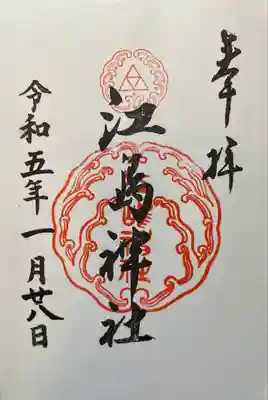 奉拝
江島神社
令和五年一月廿八日